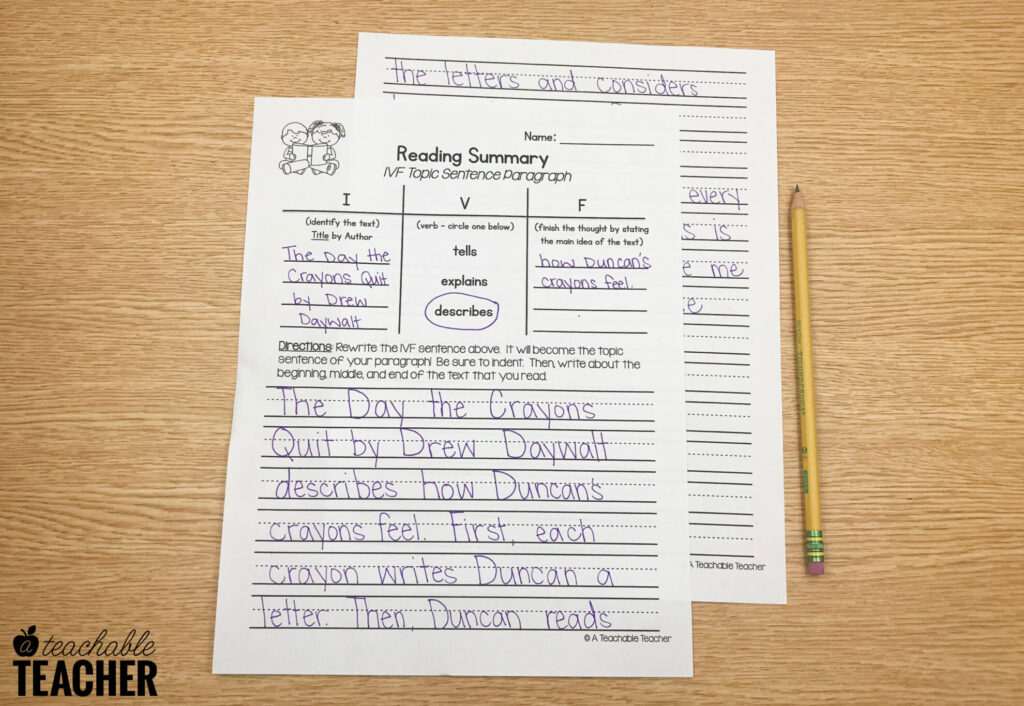 the letters and considers
every
is
me
Name:
Reading Summary
IVF Topic Sentence Paragraph
I
V
F
(identify the text)
Title by Author
(verb - circle one below)
(finish the thought by stating
the main idea of the text)
The Day the
Crayons Quit
by Drew
Daywalt
tells
explains
describes
how Duncan's
crayons feel.
Directions: Rewrite the IVF sentence above. It will become the topic
sentence of your paragraph! Be sure to indent. Then, write about the
beginning, middle, and end of the text that you read.
The Day the Crayons
Quit by Drew Daywalt
describes how Duncan's
crayons feel. First, each
crayon writes Duncan a
letter. Then, Duncan reads
© A Teachable Teacher
A Teachable Teacher
a teachable
TEACHER